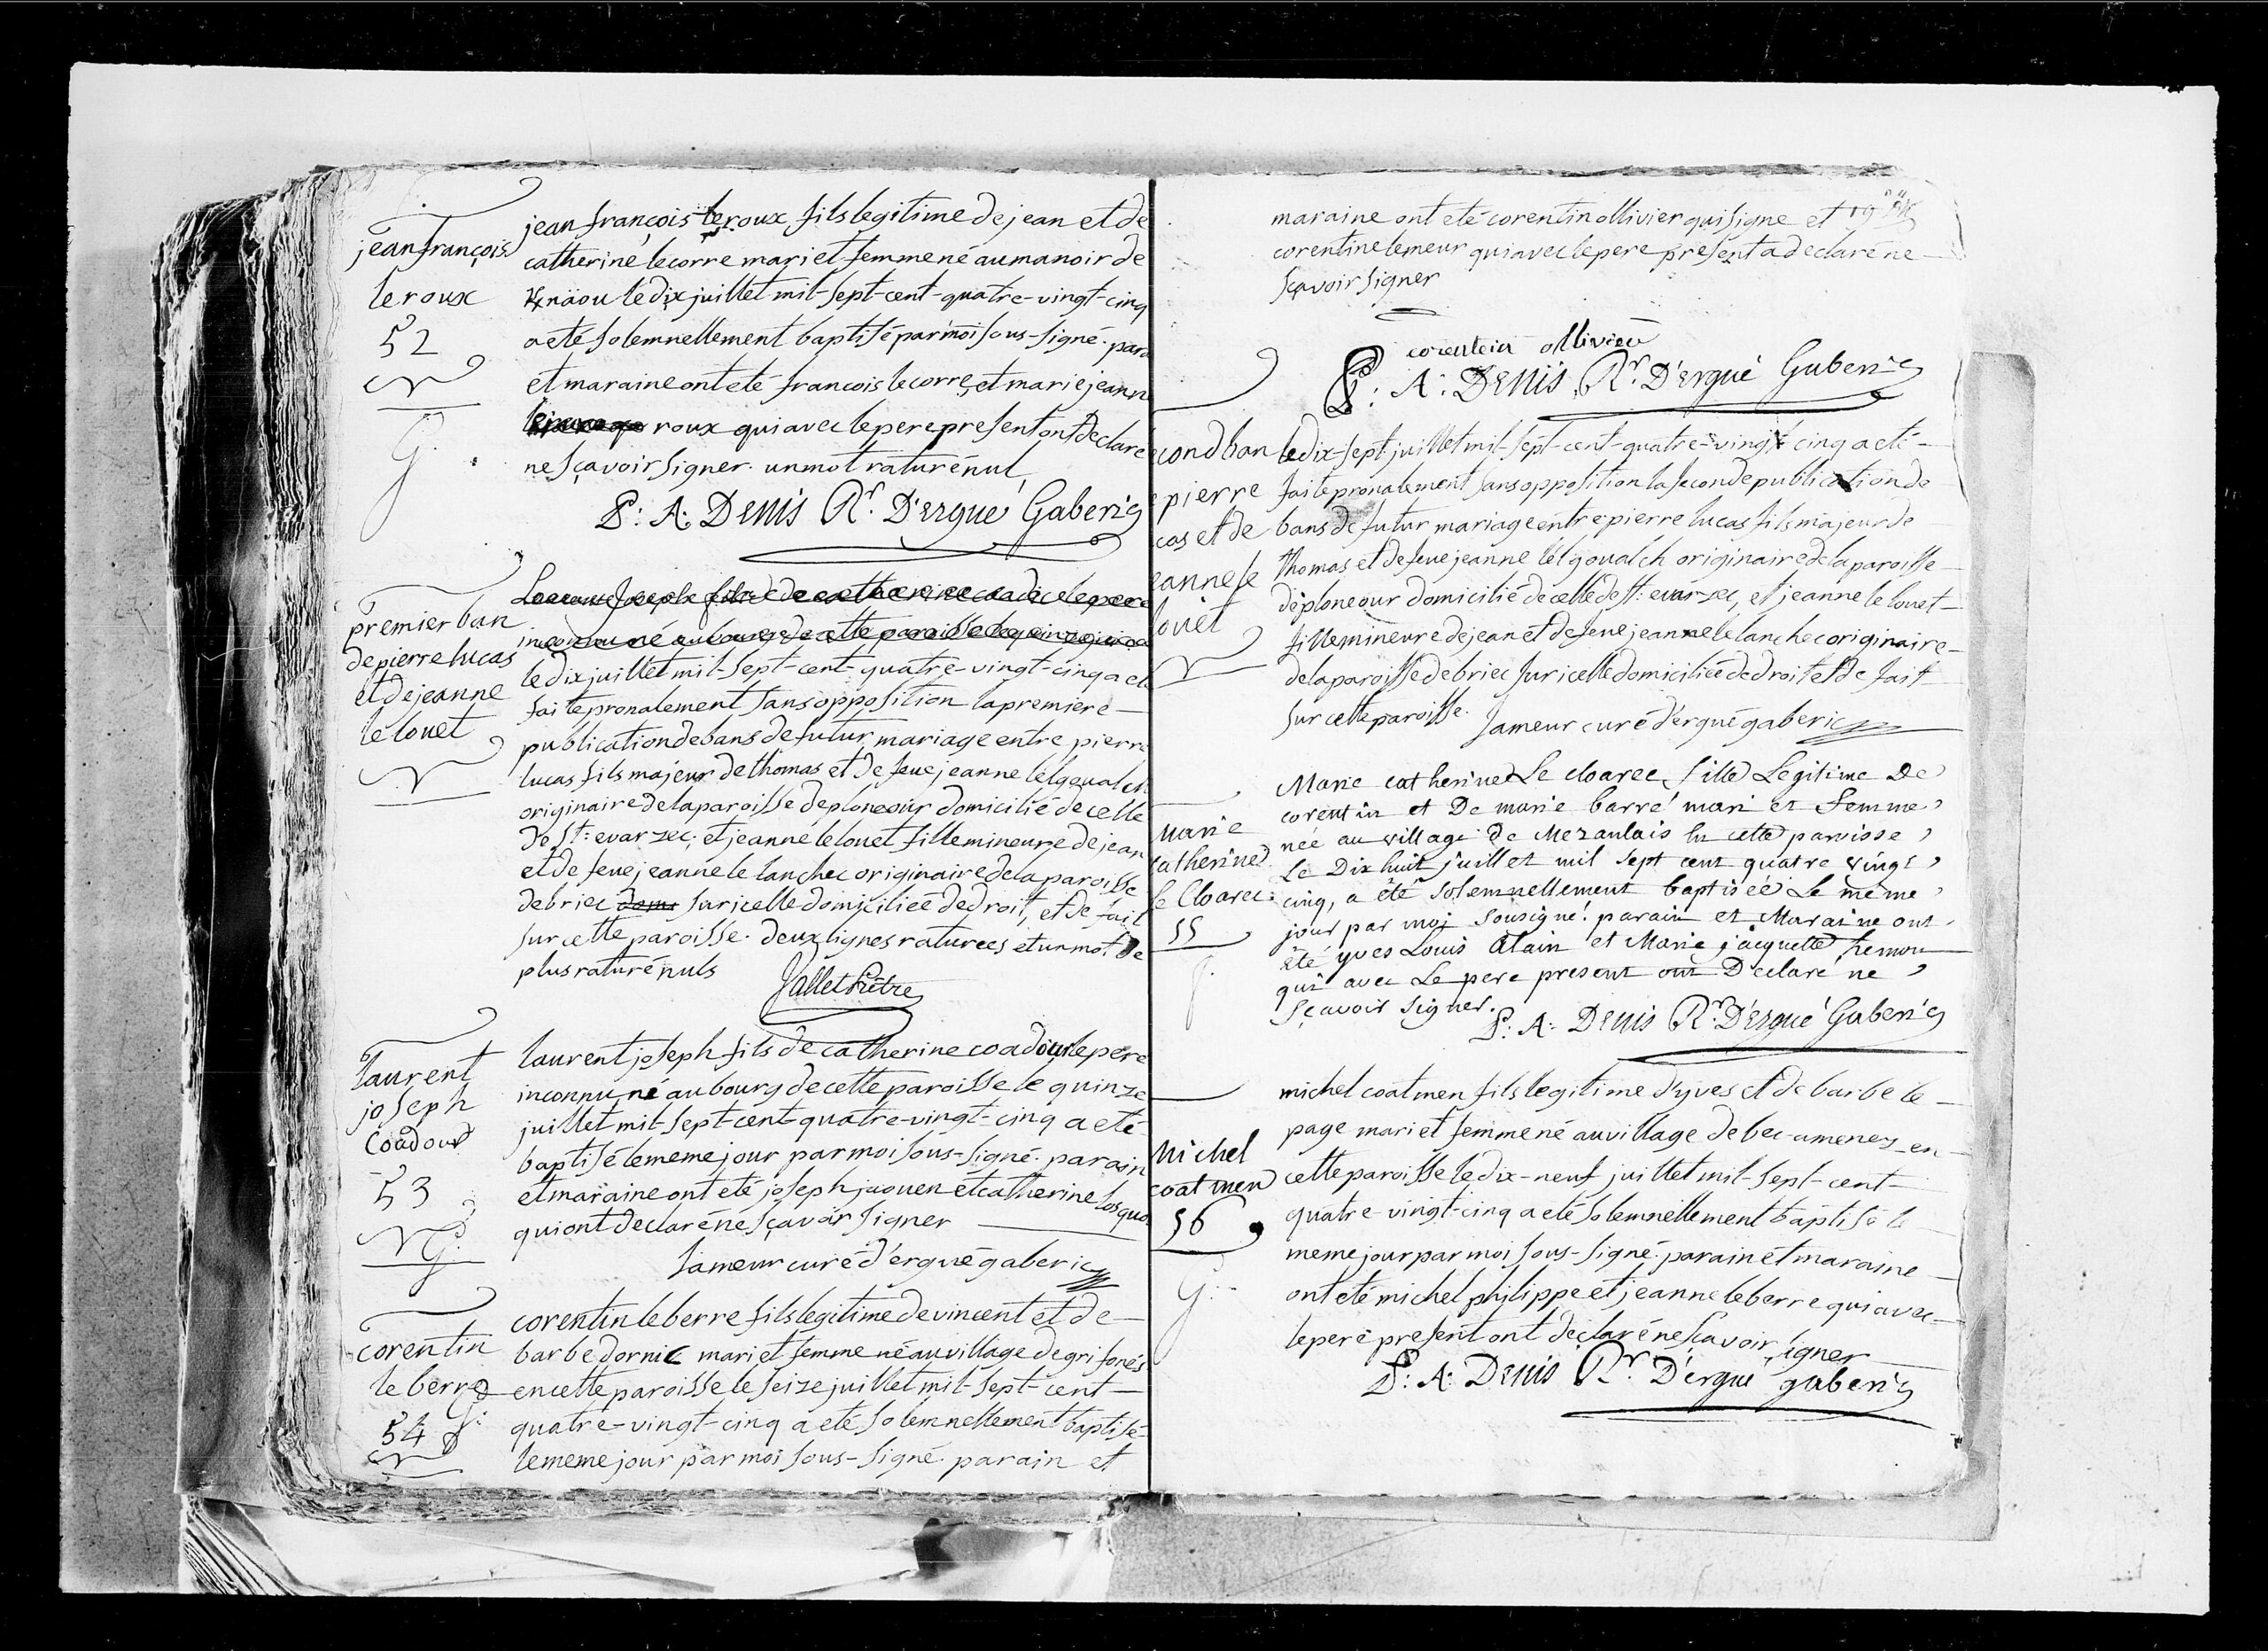 jean françois
le roux
52
jean françois le roux fils legitime de jean et de
catherine le corre mari et femme né au manoir de
näou le dix juillet mil-sept-cent-quatre-vingt-cinq
a eté solemnellement baptisé par moi sous-signé. para
et maraine ont eté francois le corre, et marie jeann
roux qui avec le pere present ont declare
ne sçavoir signer. un mot raturé nul
P: A: Denis Rr. D'ergué Gaberic
premier ban
de pierre lucas
et de jeanne
le louet
Laurent Joseph fils de catherine coadic le pere
inconnu né au bourg de cette paroisse le quinze juillet
le dix juillet mil-sept-cent-quatre-vingt-cinq a eté
faite pronalement sans opposition la premiere
publication de bans de futur mariage entre pierre
lucas fils majeur de thomas et de feue jeanne lelgoualch
originaire de la paroisse de ploneour domicilié de celle
de st: evarzec; et jeanne le louet fille mineure de jean
et de feue jeanne le lanchec originaire de la paroisse
de briec domi sur icelle domiciliée de droit, et de fait
sur cette paroisse. deux lignes raturées et un mot de
plus raturé nuls
Jallet Prêtre
laurent
joseph
Coadour
53
laurent joseph fils de catherine coadour le pere
inconnu, né au bourg de cette paroisse le quinze
juillet mil-sept-cent-quatre-vingt-cinq a eté
baptisé le meme jour par moi sous-signé. parain
et maraine ont eté joseph jaouen et catherine losqua
qui ont declaré ne sçavoir signer
Jameur curé d'ergué gaberic
corentin
le berre
54
corentin le berre fils legitime de vincent et de
barbe dornic mari et femme né au village de grifonés
en cette paroisse le seize juillet mil-sept-cent
quatre-vingt-cinq a eté solemnellement baptisé
le meme jour par moi sous-signé. parain et
maraine ont eté corentin ollivier qui signe et
corentine lemeur qui avec le pere present a declaré ne
sçavoir signer
corentin ollivier
P: A: Denis Rr. D'ergué Gaberic
cond ban
pierre
cas et de
eanne le
louet
le dix-sept juillet mil-sept-cent-quatre-vingt cinq a eté
faite pronalement sans opposition la seconde publication de
bans de futur mariage entre pierre lucas fils majeur de
thomas et de feue jeanne lelgoualch originaire de la paroisse
de ploneour domicilié de celle de st: evarzec, et jeanne le louet
fille mineure de jean et de feue jeanne le lanchec originaire
de la paroisse de briec sur icelle domiciliée de droit et de fait
sur cette paroisse.
Jameur curé d'ergué gaberic
Marie
catherine
Le Cloarec
55
Marie catherine Le cloarec, fille Legitime De
corentin et De marie barré mari et femme
née au village de Mezanlais en cette paroisse
Le Dix huit juillet mil sept cent quatre vingt
cinq, a été solemnellement baptisée Le même
jour par moi sousigné. parain et Maraine ont
été yves Louis Alain et Marie jacquette hemon
qui avec Le pere present ont Declaré ne
sçavoir signer.
P: A: Denis Rr. D'Ergué Gaberic
Michel
coatmen
56
michel coatmen fils legitime d'yves et de barbe le
page mari et femme né au village de bec-amenez en
cette paroisse le dix-neuf juillet mil-sept-cent
quatre-vingt-cinq a eté solemnellement baptisé le
meme jour par moi sous-signé. parain et maraine
ont eté michel philippe et jeanne le berre qui avec
le pere present ont declaré ne sçavoir signer
P: A: Denis Rr. D'ergué gaberic